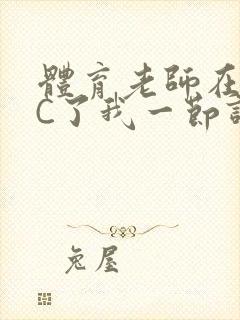 體育老師在
C了我一節
兔屋